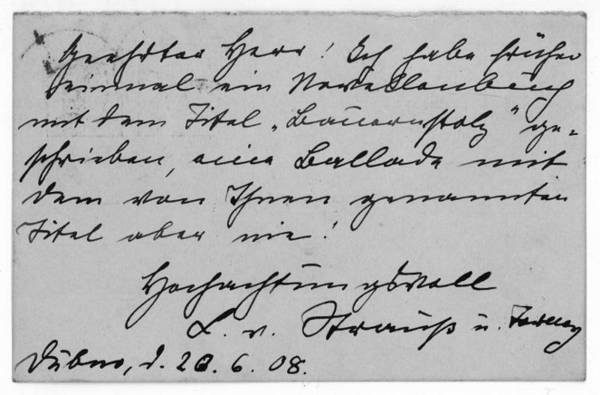 Geehrter Herr! Ich habe früher
einmal ein Novellenbuch
mit dem Titel „Bauernstolz“ ge-
schrieben, eine Ballade mit
dem von Ihnen genannten
Titel aber nie!
Hochachtungsvoll
L. v. Strauß u. Torney
d. 6. 08.